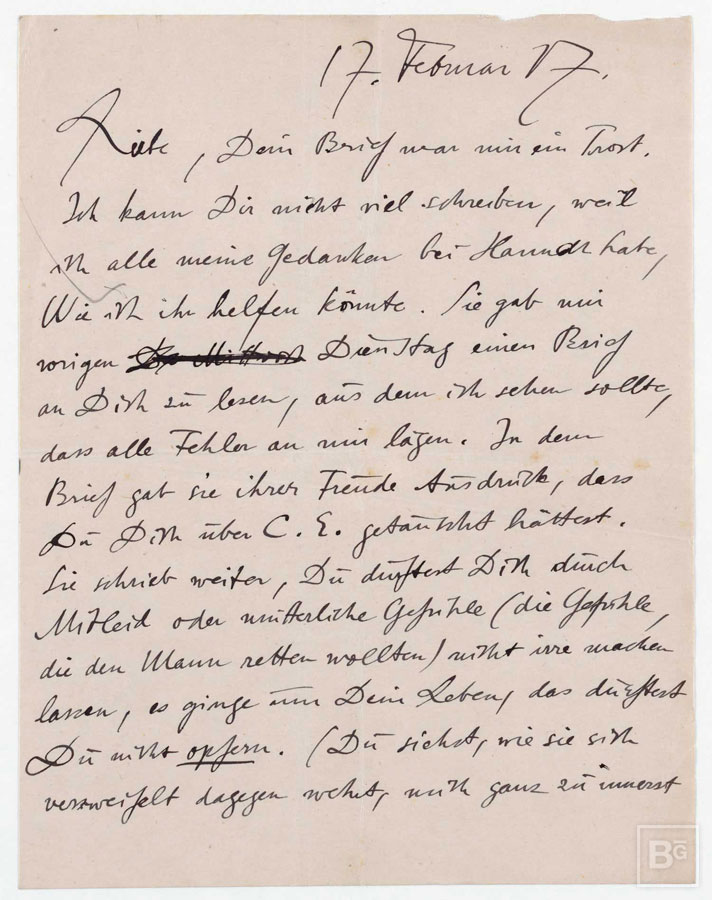 17. Februar 17.
Liebe, Dein Brief war mir ein Trost.
Ich kann Dir nicht viel schreiben, weil
ich alle meine Gedanken bei Hannah habe,
Wie ich ihr helfen könnte. Sie gab mir
vorigen Mittwoch Dienstag einen Brief
an Dich zu lesen, aus dem ich sehen sollte,
dass alle Fehler an mir lägen. In dem
Brief gab sie ihrer Freude Ausdruck, dass
Du Dich über C. E. getäuscht hättest.
Sie schrieb weiter, Du dürftest Dich durch
Mitleid oder mütterliche Gefühle (die Gefühle,
die den Mann retten wollten) nicht irre machen
lassen, es ginge um Dein Leben, das dürftest
Du nicht opfern. (Du siehst, wie sie sich
verzweifelt dagegen wehrt, mich ganz zu innerst
BG